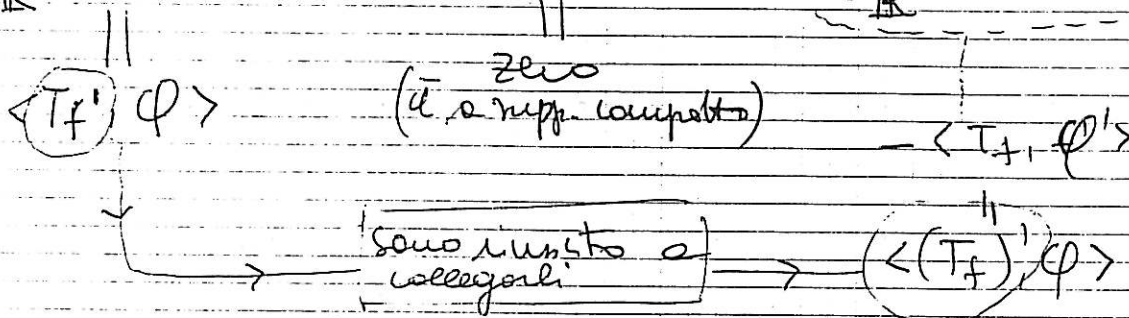 ℝ ℝ
zero
<T_f', φ> (è a supp. compatto)
- <T_f, φ'>
sono riuscito a
collegarli
<(T_f)', φ>